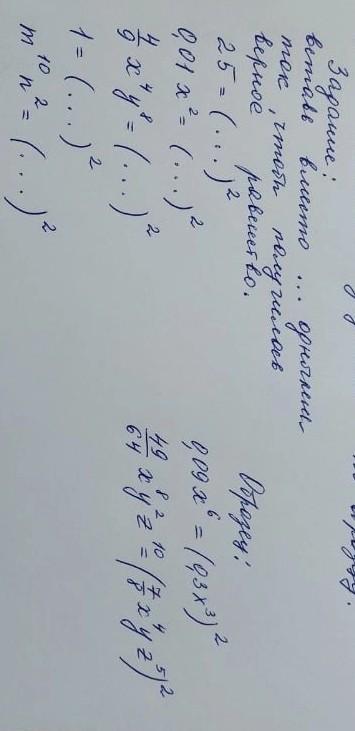 Задание:
вставь вместо ... одночлены
так, чтобы получилось
верное равенство.
25 = (...)²
0,01x² = (...)²
4/9 x⁴y⁸ = (...)²
1 = (...)²
m¹⁰n² = (...)²
Образец:
0,09x⁶ = (0,3x³)²
49/64 x⁸y²z¹⁰ = (7/8 x⁴yz⁵)²